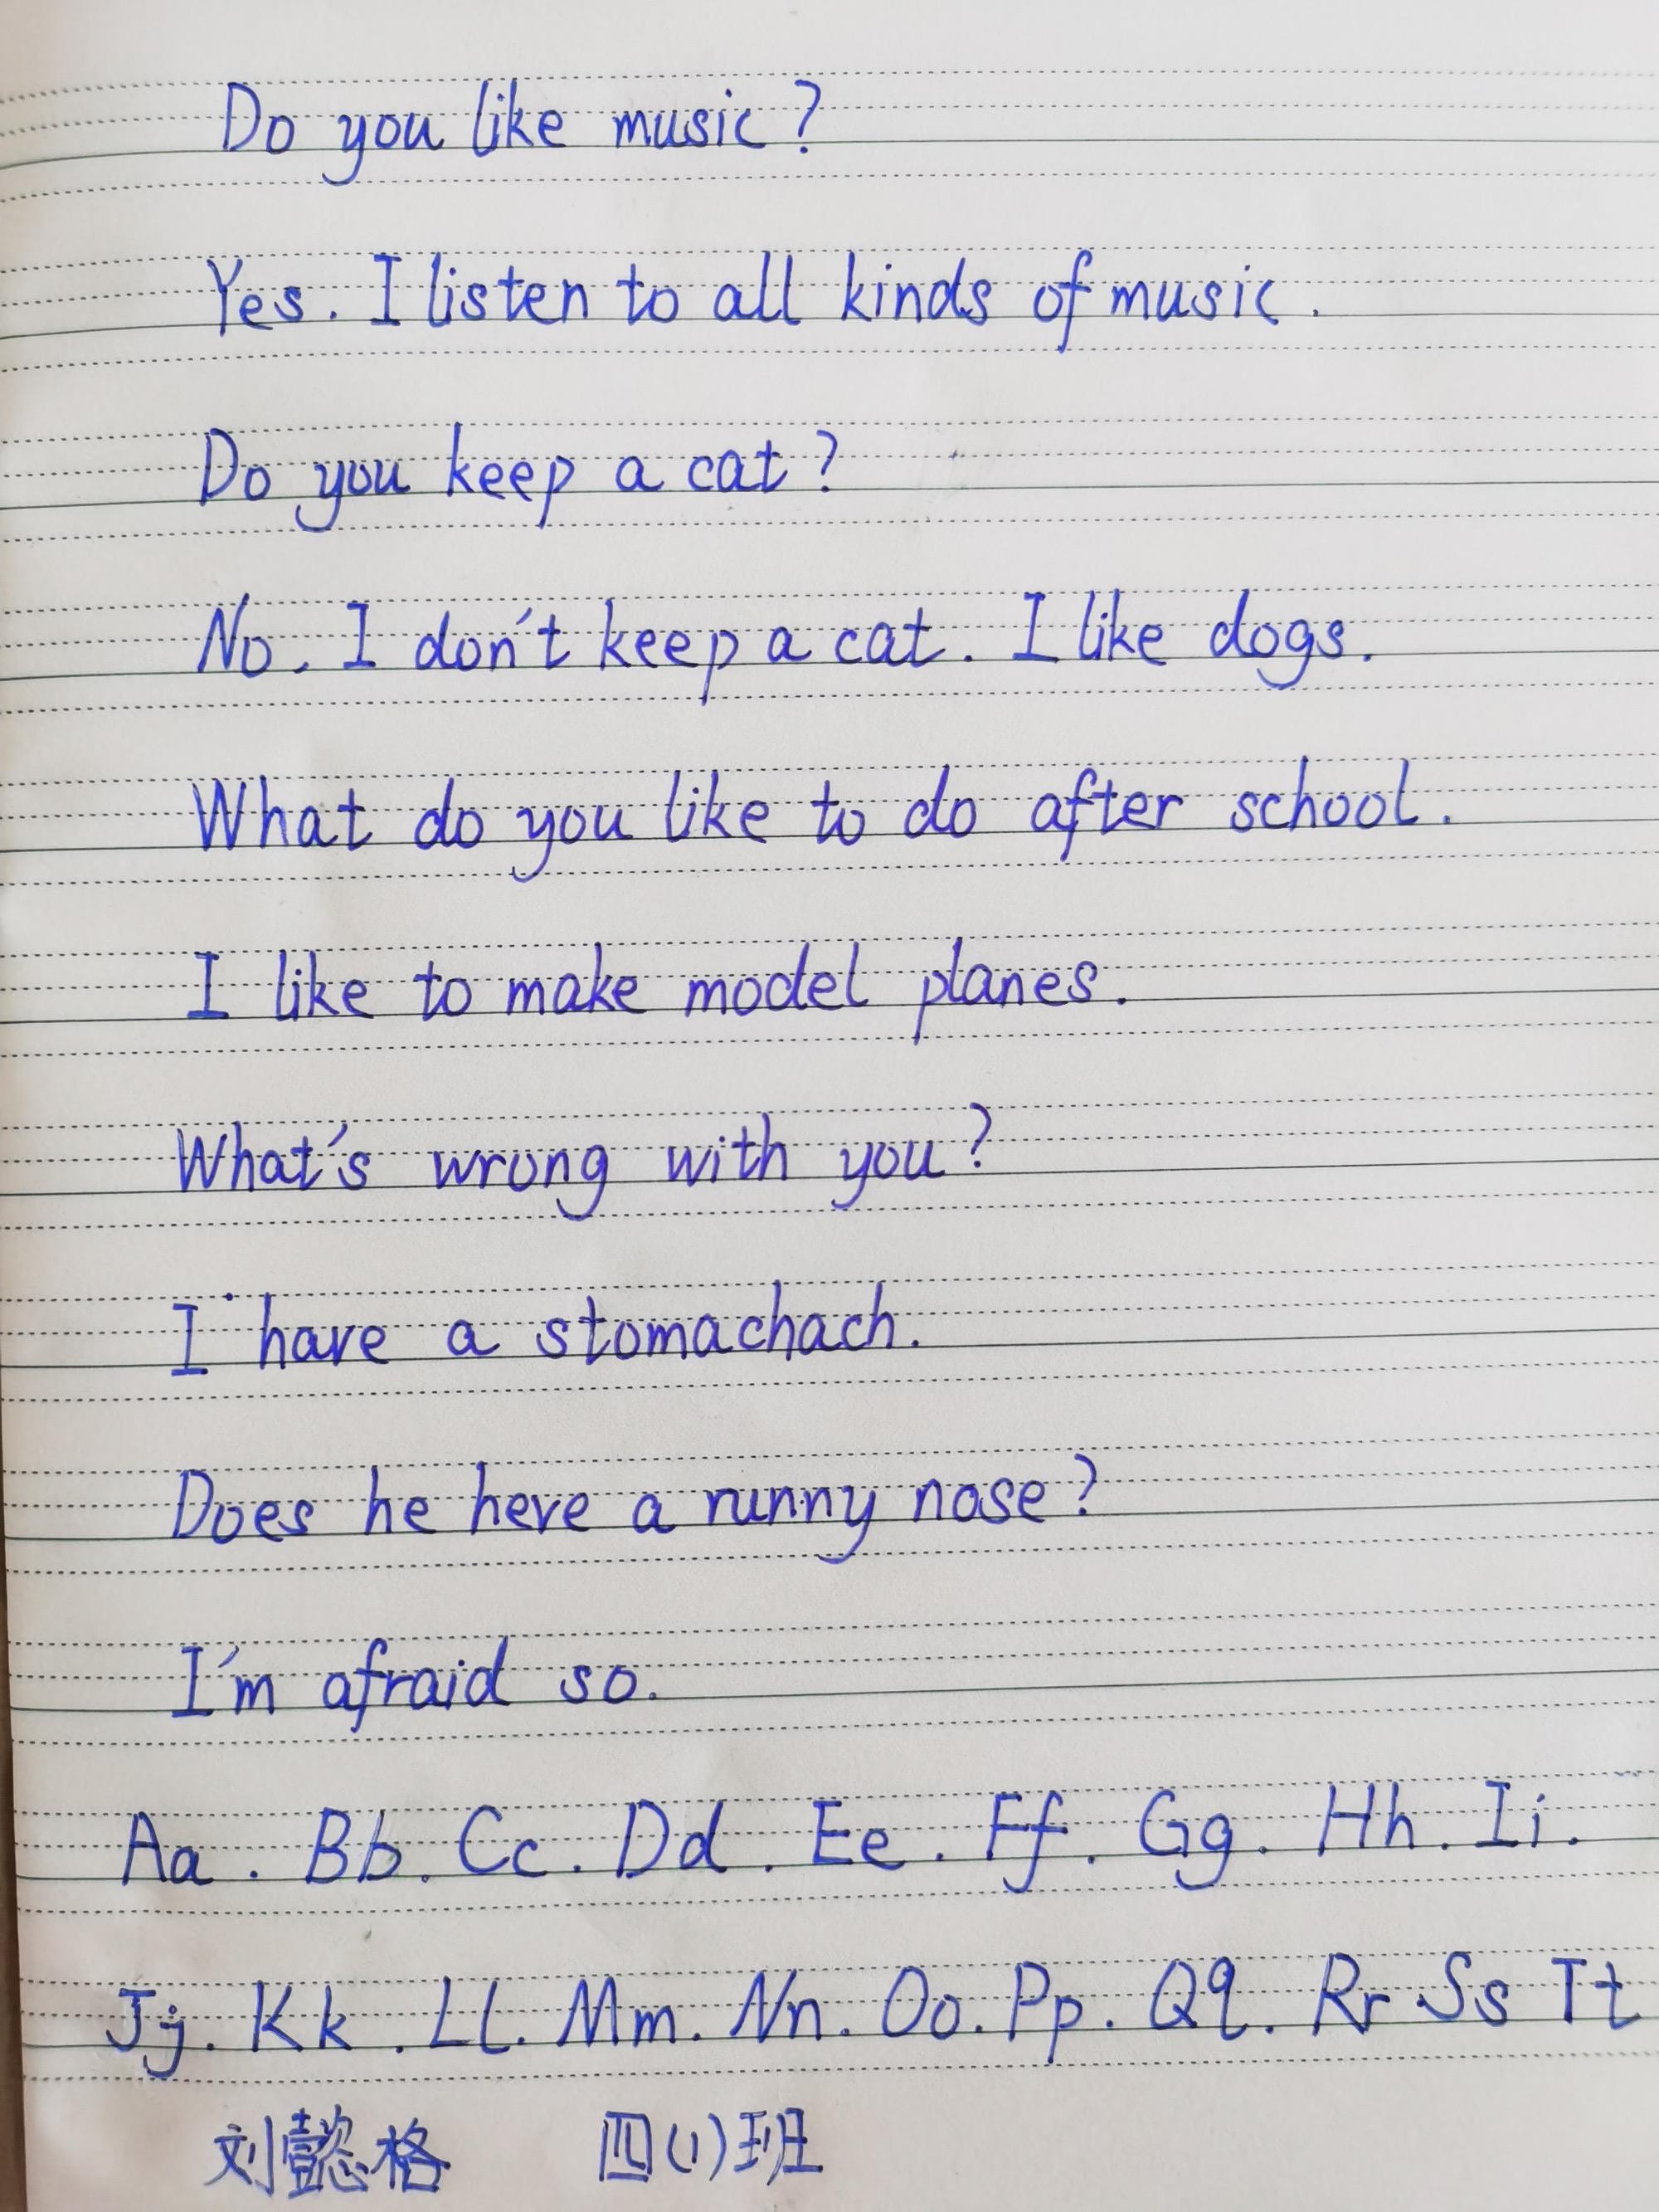 Do you like music?
Yes. I listen to all kinds of music.
Do you keep a cat?
No. I don't keep a cat. I like dogs.
What do you like to do after school.
I like to make model planes.
What's wrong with you?
I have a stomachach.
Does he heve a runny nose?
I'm afraid so.
Aa. Bb. Cc. Dd. Ee. Ff. Gg. Hh. Ii.
Jj. Kk. Ll. Mm. Nn. Oo. Pp. Qq. Rr Ss Tt
刘懿格 四(1)班